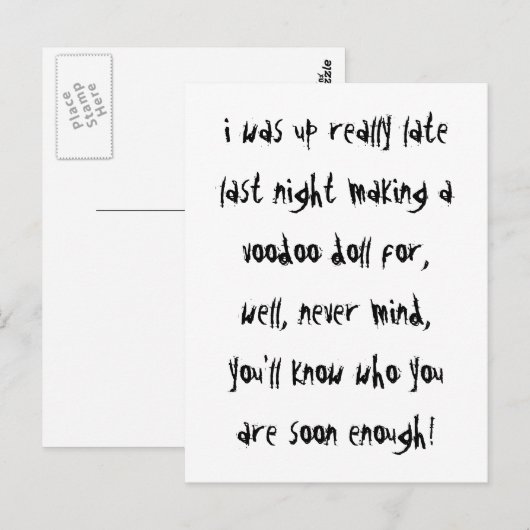 Place
Stamp
Here
zzle
i was up really late
last night making a
voodoo doll for,
well, never mind,
you'll know who you
are soon enough!